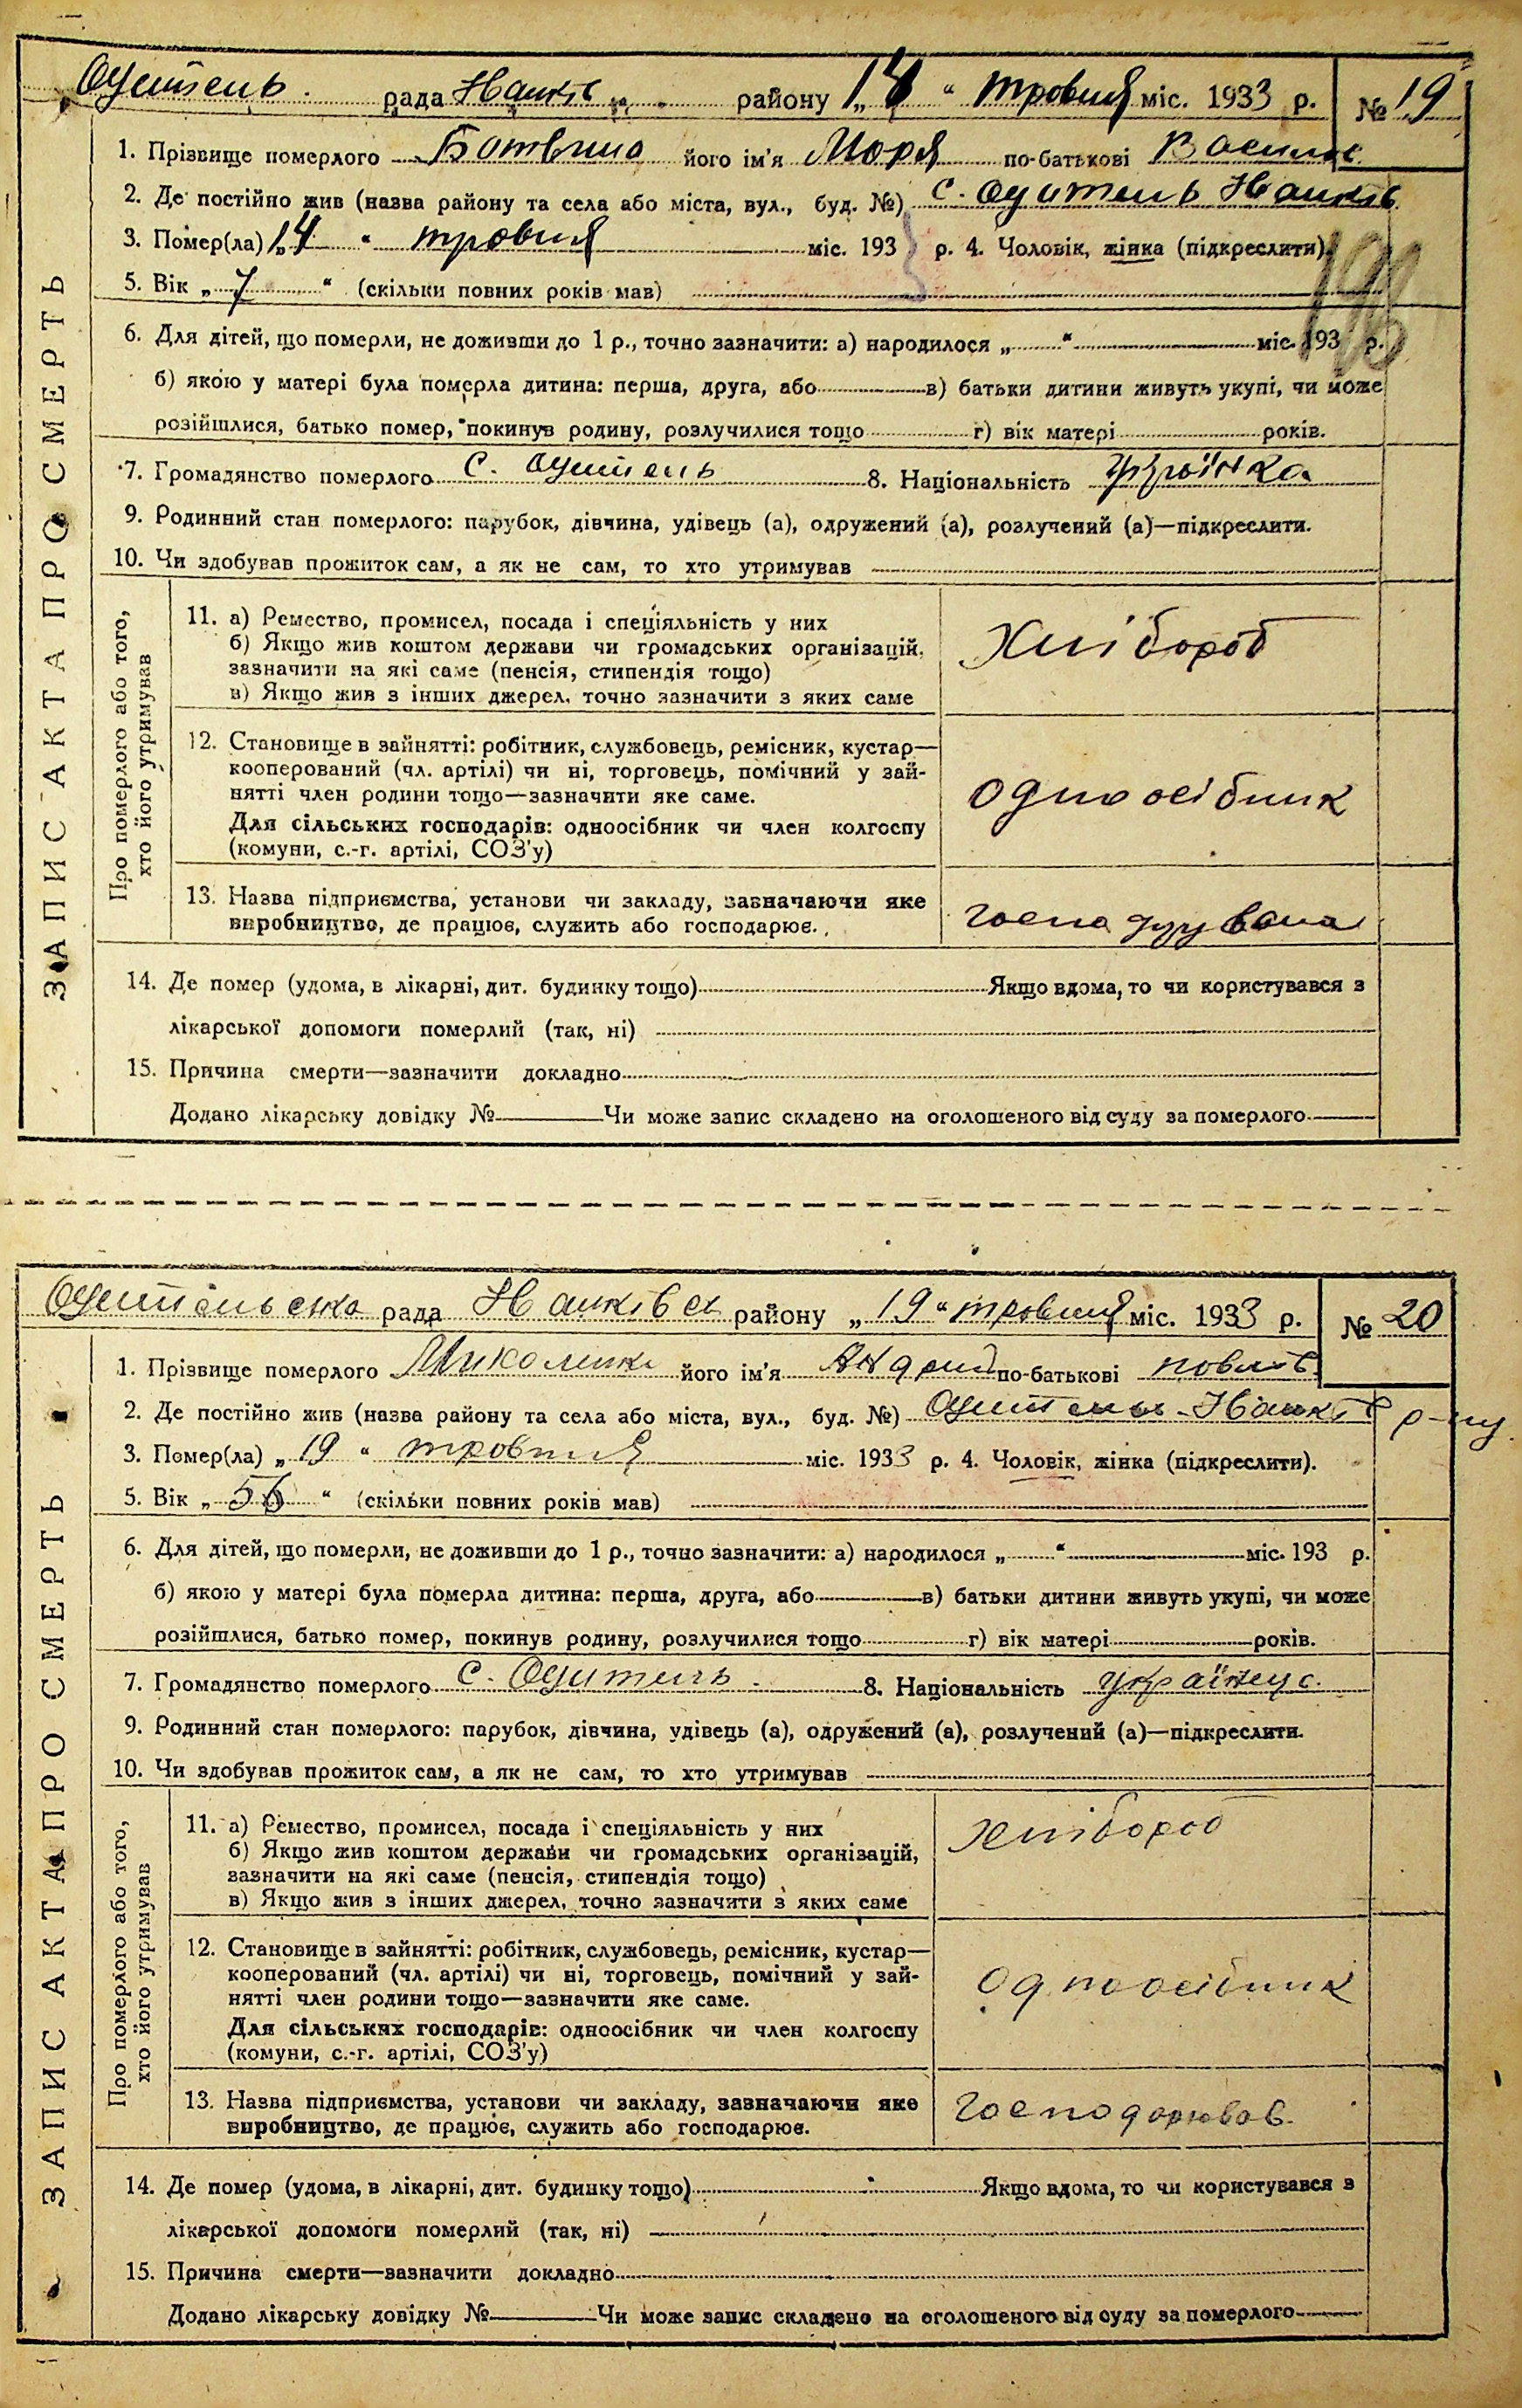 рада Іванків району „14“ травня міс. 1933 р. № 19
1. Прізвище померлого Ботвина його ім'я Марія по-батькові Василів
2. Де постійно жив (назва району та села або міста, вул., буд. №) с. Оцитель Іванків
3. Помер(ла) „14“ травня міс. 193 р. 4. Чоловік, жінка (підкреслити).
5. Вік „7“ (скільки повних років мав)
6. Для дітей, що померли, не доживши до 1 р., точно зазначити: а) народилося „ “ міс. 193 р.
б) якою у матері була померла дитина: перша, друга, або в) батьки дитини живуть укупі, чи може
розійшлися, батько помер, покинув родину, розлучилися тощо г) вік матері років.
7. Громадянство померлого с. Оцитель 8. Національність
9. Родинний стан померлого: парубок, дівчина, удівець (а), одружений (а), розлучений (а)—підкреслити.
10. Чи здобував прожиток сам, а як не сам, то хто утримував
ЗАПИС АКТА ПРО СМЕРТЬ
Про померлого або того,
хто його утримував
11. а) Ремество, промисел, посада і спеціяльність у них
б) Якщо жив коштом держави чи громадських організацій,
зазначити на які саме (пенсія, стипендія тощо)
в) Якщо жив з інших джерел, точно зазначити з яких саме
хлібороб
12. Становище в зайнятті: робітник, службовець, ремісник, кустар—
кооперований (чл. артілі) чи ні, торговець, помічний у зай-
нятті член родини тощо—зазначити яке саме.
Для сільських господарів: одноосібник чи член колгоспу
(комуни, с.-г. артілі, СОЗ'у)
одноосібник
13. Назва підприємства, установи чи закладу, зазначаючи яке
виробництво, де працює, служить або господарює.
14. Де помер (удома, в лікарні, дит. будинку тощо) Якщо вдома, то чи користувався з
лікарської допомоги померлий (так, ні)
15. Причина смерти—зазначити докладно
Додано лікарську довідку № Чи може запис складено на оголошеного від суду за померлого
рада Іванківск району „19“ травня міс. 1933 р. № 20
1. Прізвище померлого його ім'я Андрій по-батькові Павлів
2. Де постійно жив (назва району та села або міста, вул., буд. №) Оцитель Іванків р-ну
3. Помер(ла) „19“ травня міс. 1933 р. 4. Чоловік, жінка (підкреслити).
5. Вік „56“ (скільки повних років мав)
6. Для дітей, що померли, не доживши до 1 р., точно зазначити: а) народилося „ “ міс. 193 р.
б) якою у матері була померла дитина: перша, друга, або в) батьки дитини живуть укупі, чи може
розійшлися, батько помер, покинув родину, розлучилися тощо г) вік матері років.
7. Громадянство померлого с. Оцитель 8. Національність українец
9. Родинний стан померлого: парубок, дівчина, удівець (а), одружений (а), розлучений (а)—підкреслити.
10. Чи здобував прожиток сам, а як не сам, то хто утримував
ЗАПИС АКТА ПРО СМЕРТЬ
Про померлого або того,
хто його утримував
11. а) Ремество, промисел, посада і спеціяльність у них
б) Якщо жив коштом держави чи громадських організацій,
зазначити на які саме (пенсія, стипендія тощо)
в) Якщо жив з інших джерел, точно зазначити з яких саме
хлібороб
12. Становище в зайнятті: робітник, службовець, ремісник, кустар—
кооперований (чл. артілі) чи ні, торговець, помічний у зай-
нятті член родини тощо—зазначити яке саме.
Для сільських господарів: одноосібник чи член колгоспу
(комуни, с.-г. артілі, СОЗ'у)
одноосібник
13. Назва підприємства, установи чи закладу, зазначаючи яке
виробництво, де працює, служить або господарює.
господарював.
14. Де помер (удома, в лікарні, дит. будинку тощо) Якщо вдома, то чи користувався з
лікарської допомоги померлий (так, ні)
15. Причина смерти—зазначити докладно
Додано лікарську довідку № Чи може запис складено на оголошеного від суду за померлого